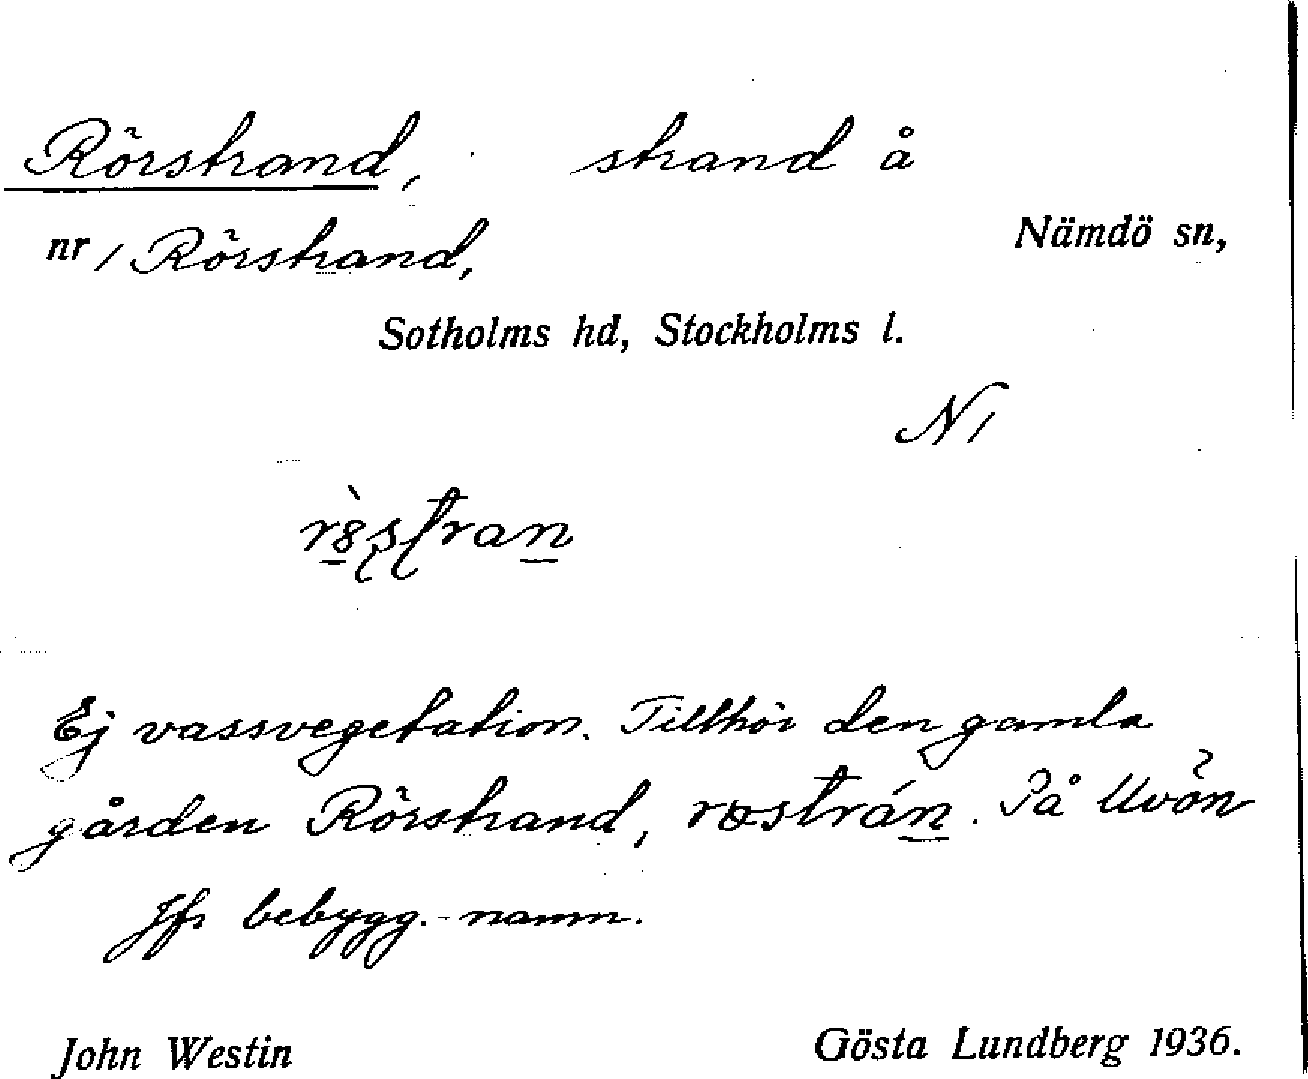 Rörstrand, strand å
nr 1 Rörstrand, Nämdö sn,
Sotholms hd, Stockholms l.
N1
Ej vassvegetation. Tillhör den gamla
gården Rörstrand, rostrán. På Uvön
Jfr bebygg.-namn.
John Westin Gösta Lundberg 1936.